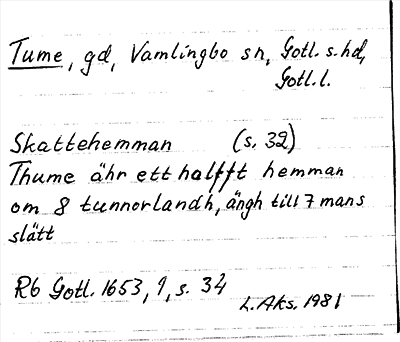 Tume, gd, Vamlingbo sn, Gotl. s. hd,
Gotl. l.
Skattehemman (s. 32)
Thume ähr ett halfft hemman
om 8 tunnorlandh, ängh till 7 mans
slätt
Rb Gotl. 1653, 1, s. 34
L. Aks. 1981